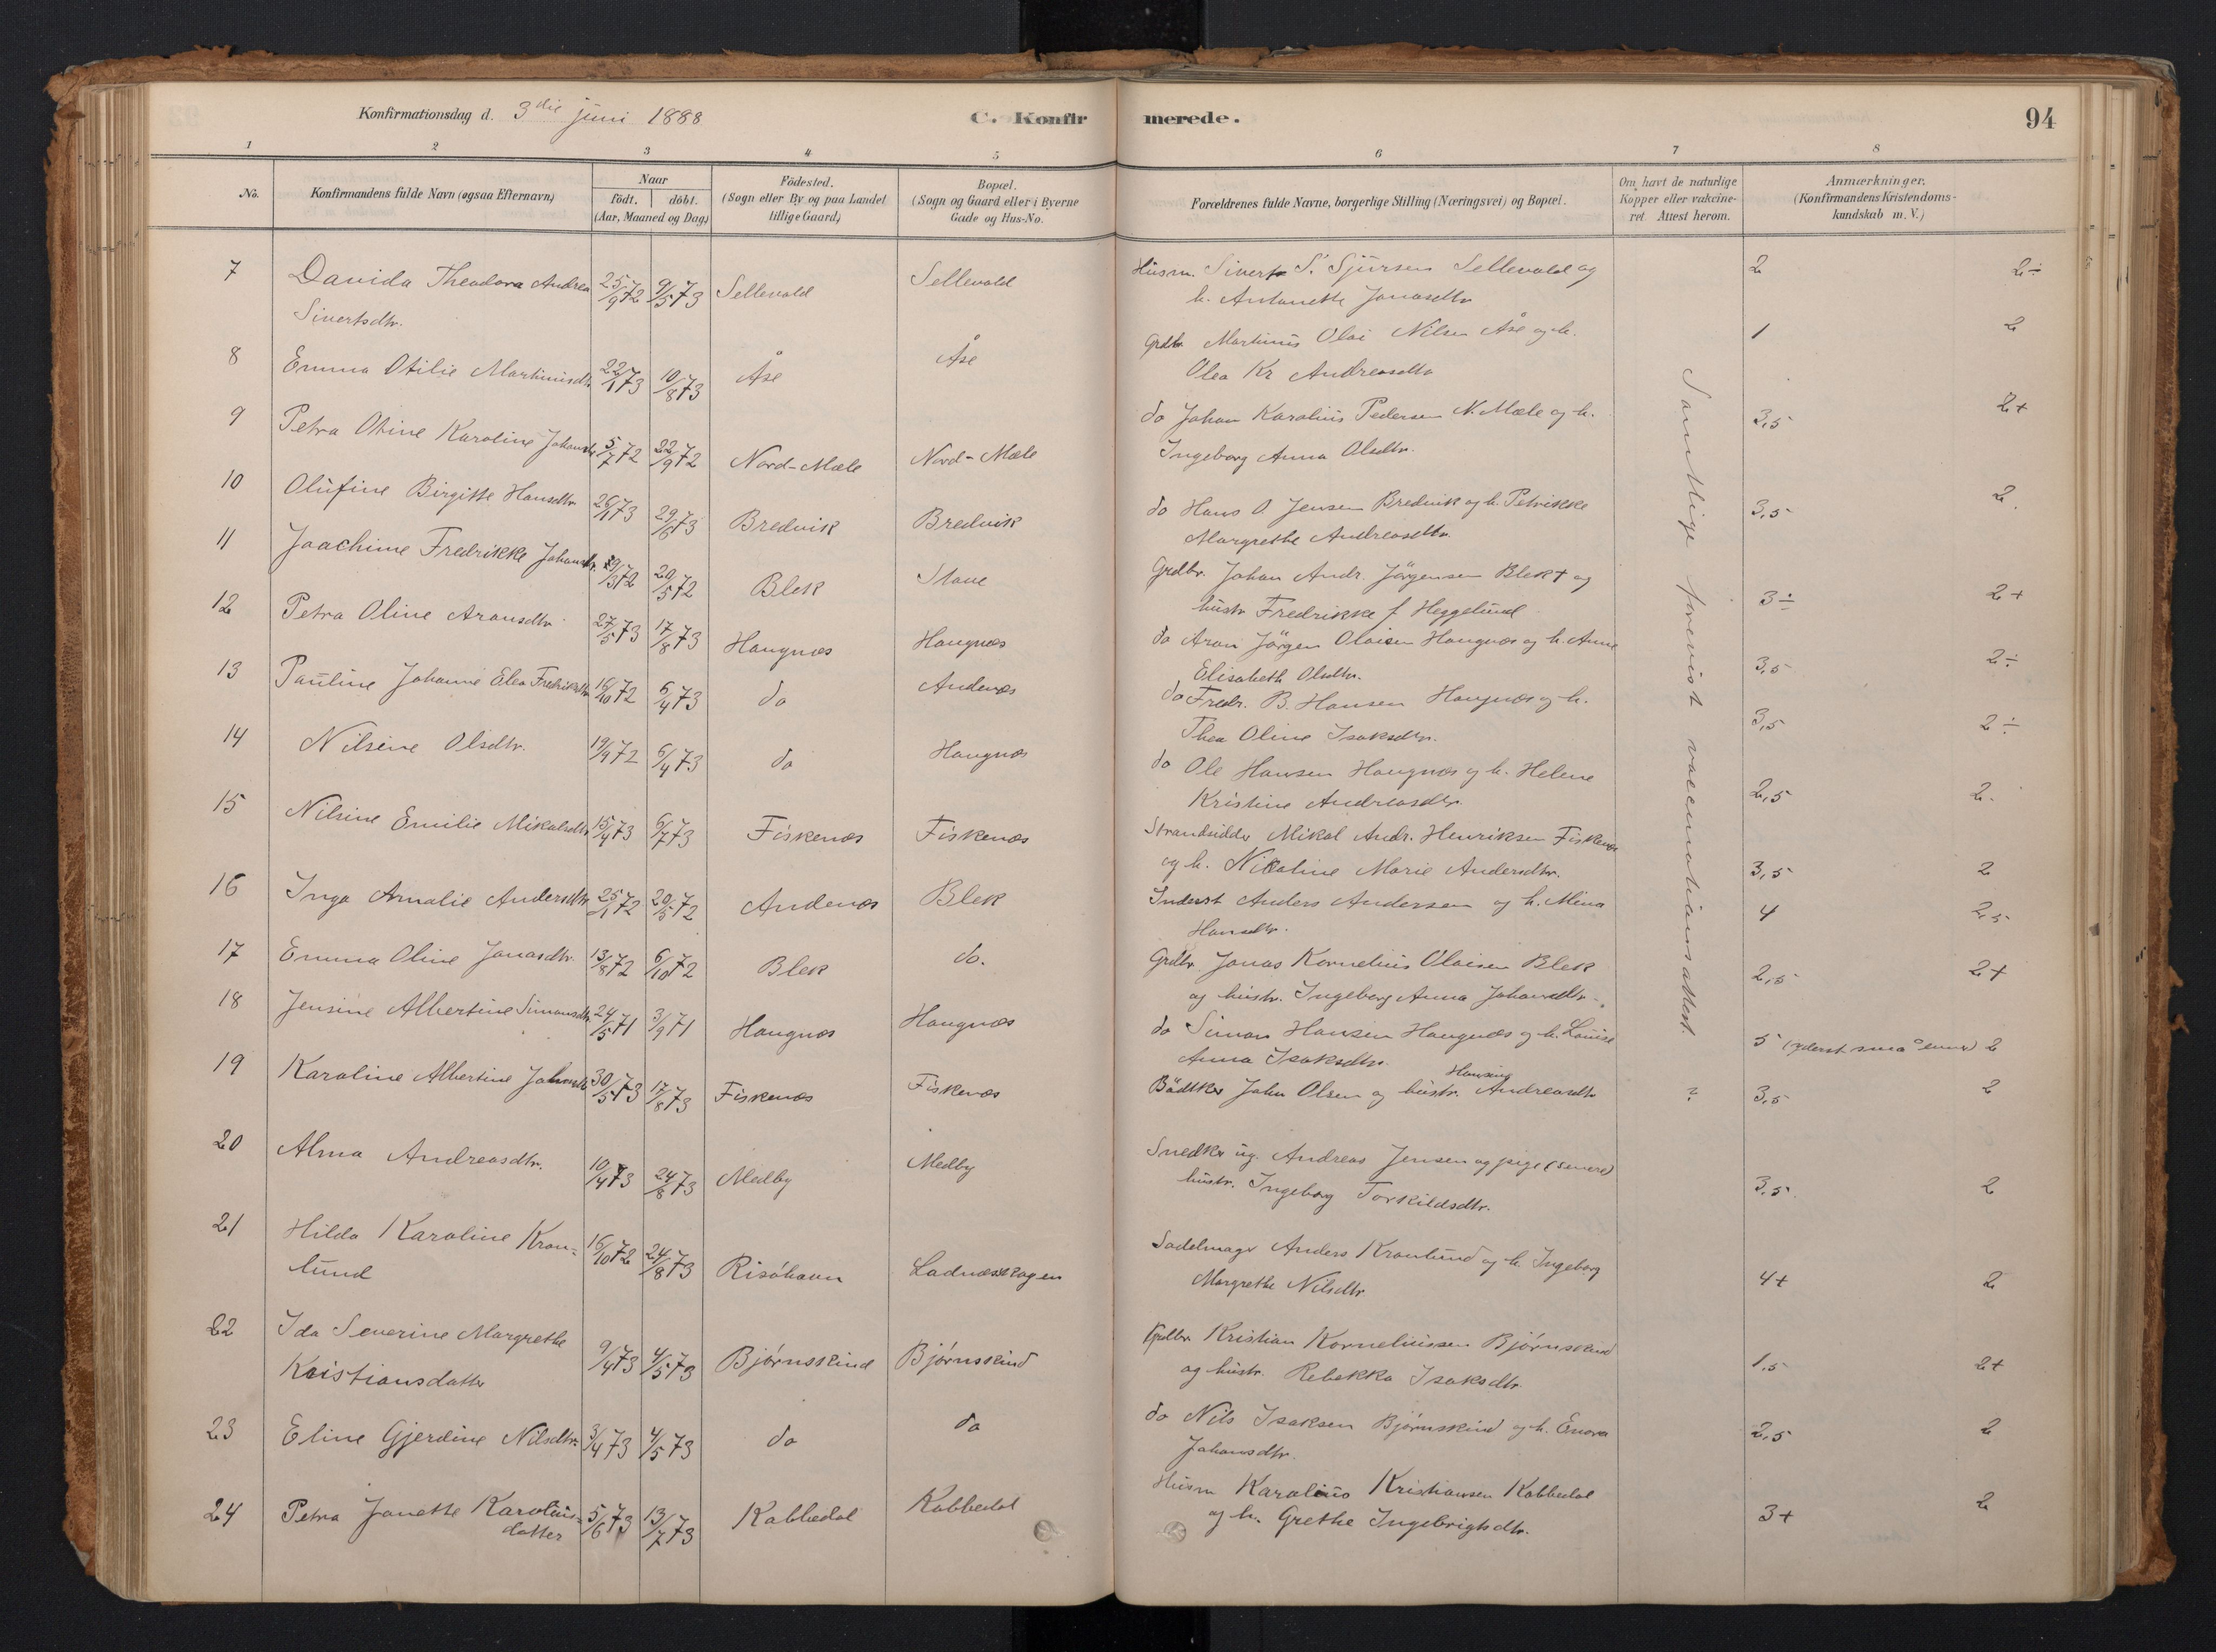 Konfirmationsdag d. 3die juni 1888
C. Konfirmerede.
94
1 2 3 4 5 6 7 8
No.
Konfirmandens fulde Navn (ogsaa Efternavn)
Naar
födt. döbt.
(Aar, Maaned og Dag)
Födested.
(Sogn eller By og paa Landet
tillige Gaard)
Bopæl.
(Sogn og Gaard eller i Byerne
Gade og Hus-No.
Forældrenes fulde Navne, borgerlige Stilling (Næringsvei) og Bopæl.
Om havt de naturlige
Kopper eller vakcine-
ret Attest herom.
Anmærkninger.
(Konfirmandens Kristendoms-
kundskab m. V.)
7 Davida Theodora Andrea 25/9 72 9/5 73 Sellevold Sellevold Husm. Sivert S. Sjursen Sellevold og 2 2÷
Sivertsdtr. h. Antonette Jonasdtr
8 Emma Otilie Martinusdtr 22/1 73 10/8 73 Åse Åse Grdbr. Martinus Olai Nilsen Åse og h. 1 2
Olea Kr Andreasdtr
9 Petra Otine Karoline Johansdtr 5/7 72 22/9 72 Nord-Mæle Nord-Mæle do Johan Karolius Pedersen N. Mæle og h. 3,5 2+
Ingeborg Anna Olsdtr.
10 Olufine Birgitte Hansdtr 26/1 73 29/6 73 Bredvik Bredvik do Hans O. Jensen Bredvik og h. Petrikke 3,5 2
Margrethe Andreasdtr.
11 Joachime Fredrikke Johansdtr. 29/3 72 20/5 72 Blek Stave Grdbr. Johan Andr. Jörgensen Blek + og 3÷ 2+
hustr Fredrikke f. Heggelund
12 Petra Oline Aronsdtr 27/5 73 17/8 73 Haugnæs Haugnæs do Aron Jörgen Olaisen Haugnæs og h. Anne 3,5 2÷
Elisabeth Olsdtr.
13 Pauline Johanne Elea Fredriksdtr 16/10 72 6/4 73 do Andenæs do Fredr. B. Hansen Haugnæs og h. 3,5 2÷
Thea Oline Isaksdtr.
14 Nilsine Olsdtr. 19/9 72 6/4 73 do Haugnæs do Ole Hansen Haugnæs og h. Helene 2,5 2.
Kristine Andreasdtr.
15 Nilsine Emilie Mikalsdtr 15/4 73 6/7 73 Fiskenæs Fiskenæs Strandsidder Mikal Andr. Henriksen Fiskenæs 3,5 2
og h. Nikoline Marie Andersdtr.
16 Inga Amalie Andersdtr 25/1 72 20/5 72 Andenæs Blek Inderst Anders Andersen og h. Mina 4 2,5
Hansdtr.
17 Emma Oline Jonasdtr. 13/8 72 6/10 72 Blek do. Grdbr. Jonas Kornelius Olaisen Blek 2,5 2+
og hustr. Ingeborg Anna Johansdtr.
18 Jensine Albertine Simonsdtr. 24/5 71 3/9 71 Haugnæs Haugnæs do Simon Hansen Haugnæs og h. Louise 5 (yderst små evner) 2
Anna Isaksdtr.
19 Karoline Albertine Johnsdtr 30/5 73 17/8 73 Fiskenæs Fiskenæs Bödtker John Olsen og hustr. Hansine Andreasdtr ? 3,5 2
20 Alma Andreasdtr. 10/4 73 24/8 73 Medby Medby Snedker ug. Andreas Jensen og pige (senere) 3,5 2
hustr. Ingeborg Torkildsdtr.
21 Hilda Karoline Kron- 16/10 72 24/8 73 Risöhavn Ladnæsskagen Sadelmager Anders Kronlund og h. Ingeborg 4+ 2
lund Margrethe Nilsdtr.
22 Ida Severine Margrethe 9/4 73 4/5 73 Björnskind Björnskind Grdbr. Kristian Korneliussen Björnskind 1,5 2+
Kristiansdatter og hustr. Rebekka Isaksdtr.
23 Eline Gjerdine Nilsdtr. 3/4 73 4/5 73 do do do Nils Isaksen Björnskind og h. Enora 2,5 2
Johansdtr.
24 Petra Janette Karolius- 5/6 73 13/7 73 Kobbedal Kobbedal Husm Karolius Kristiansen Kobbedal 3+ 2
datter og h. Grethe Ingebrigtsdtr.
Samtlige forevist vaccinationsattest.